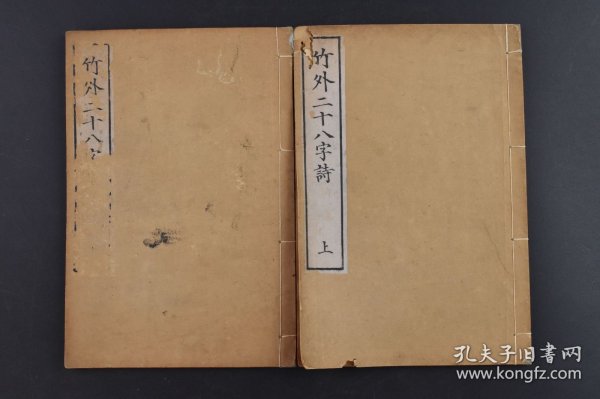 竹外二十八字詩
上
竹外二十八
孔夫子旧書网
www.kongfz.com